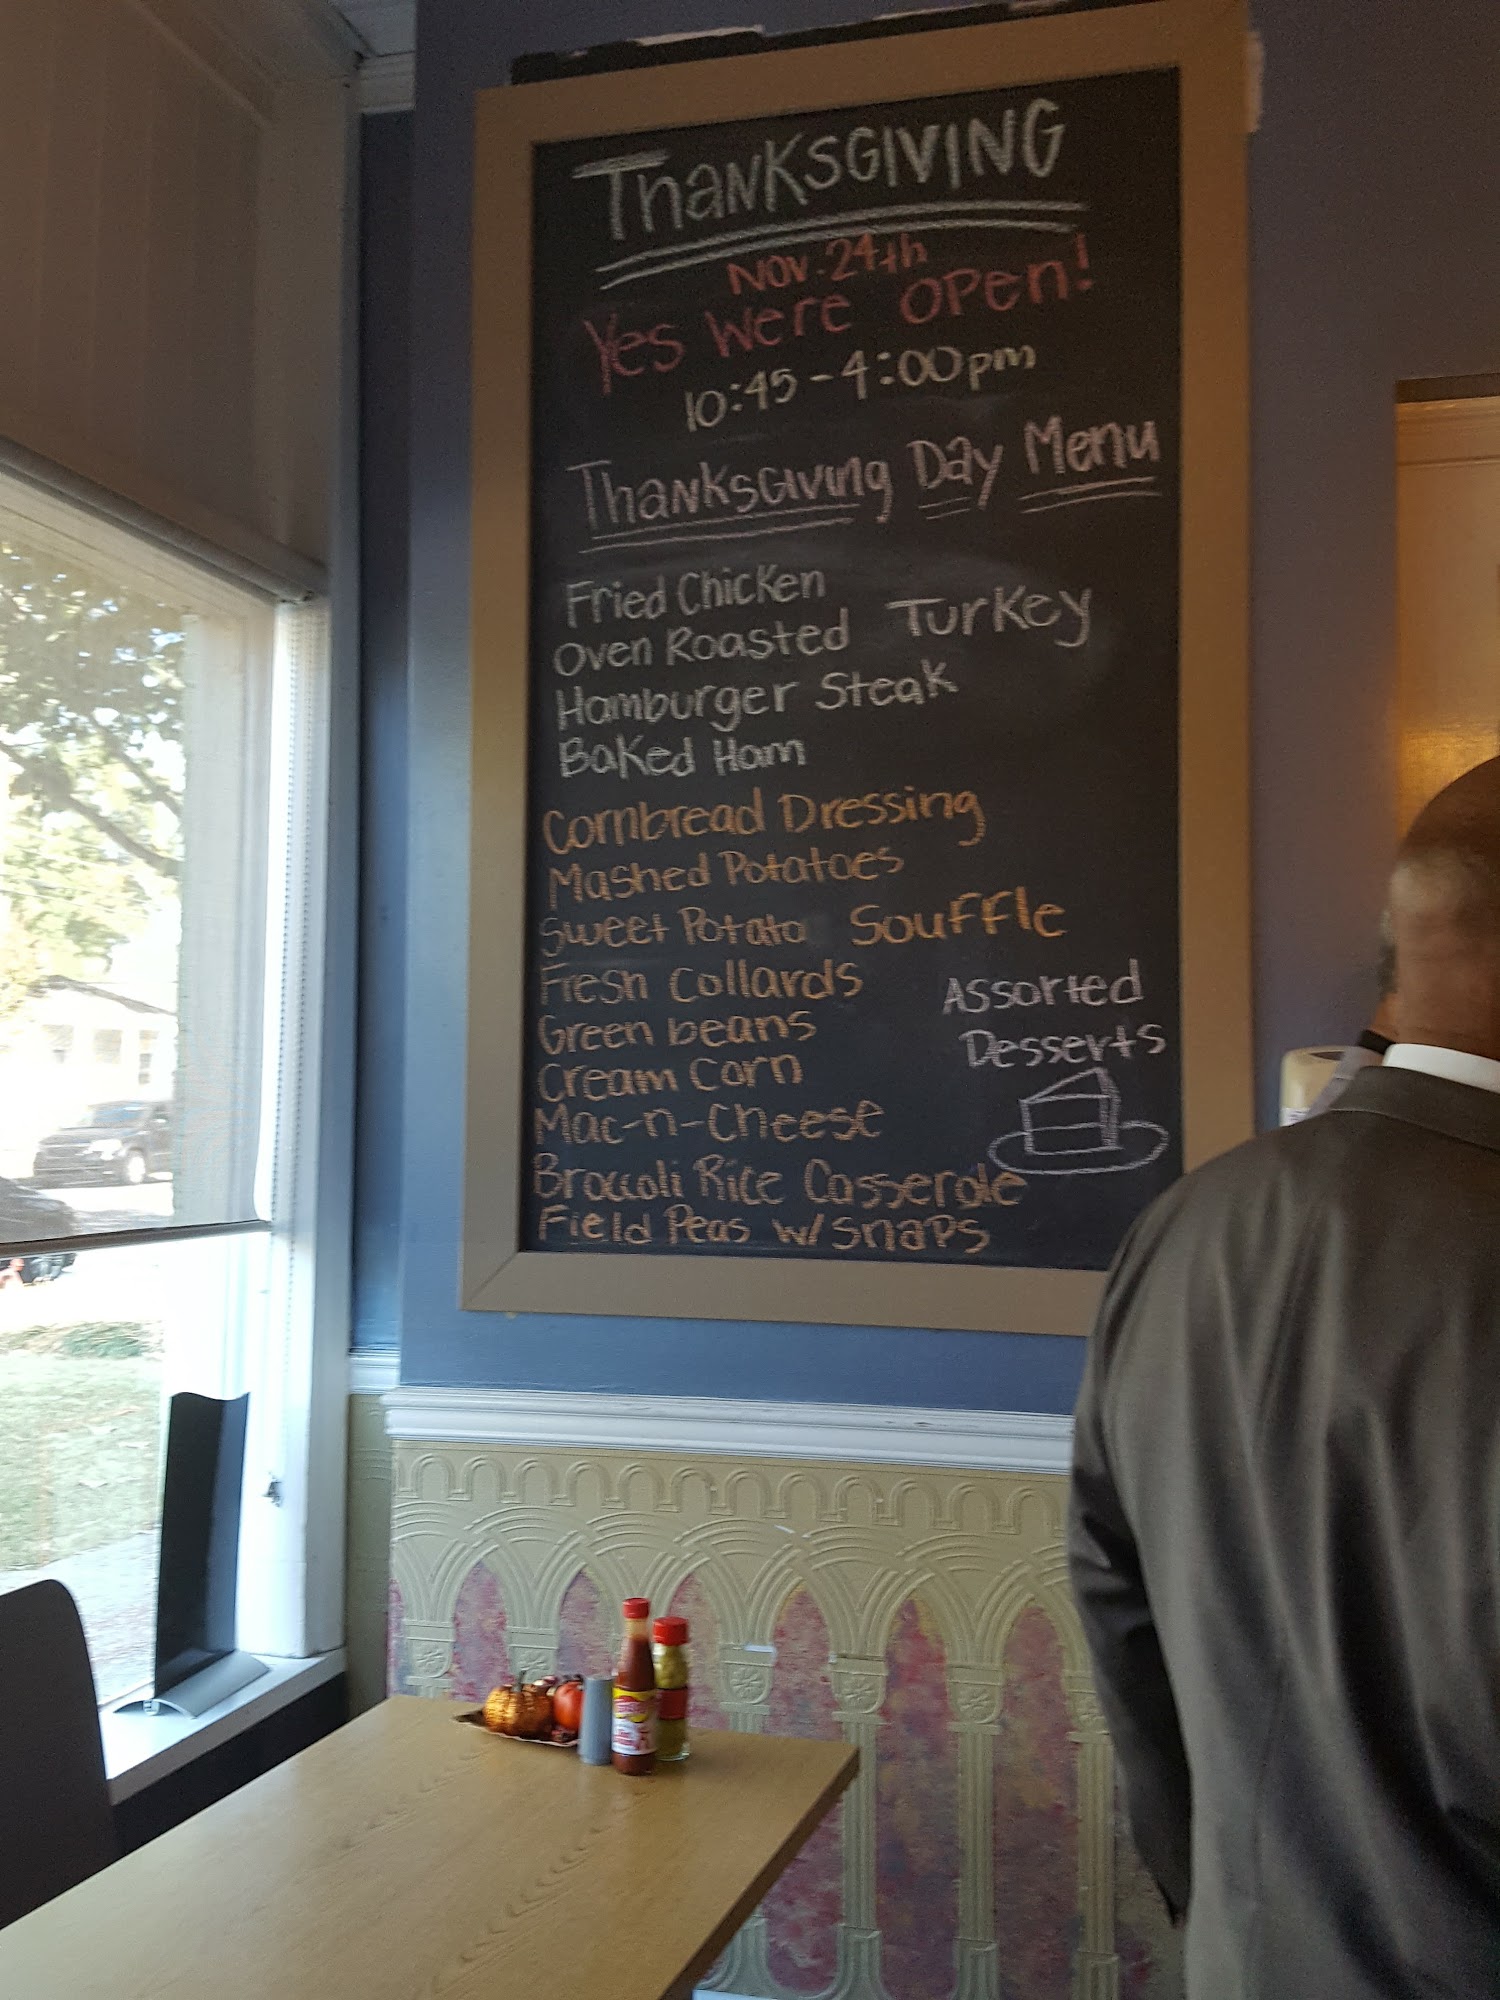 THanKSGIVING
Nov. 24th
Yes were open!
10:45-4:00pm
THanKsGiving Day Menu
Fried Chicken
Oven Roasted Turkey
Hamburger Steak
Baked Ham
Cornbread Dressing
Mashed Potatoes
Sweet Potato Souffle
Fresh Collards
Green beans
Cream Corn
Mac-n-Cheese
Broccoli Rice Casserole
Field Peas w/ snaps
Assorted
Desserts